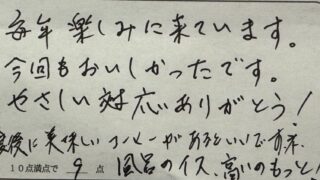 毎年楽しみに来ています。
今回もおいしかったです。
やさしい対応ありがとう！
最後に美味しいコーヒーがあるといいですネ
10点満点で 9 点 風呂のイス、高いのもっと！